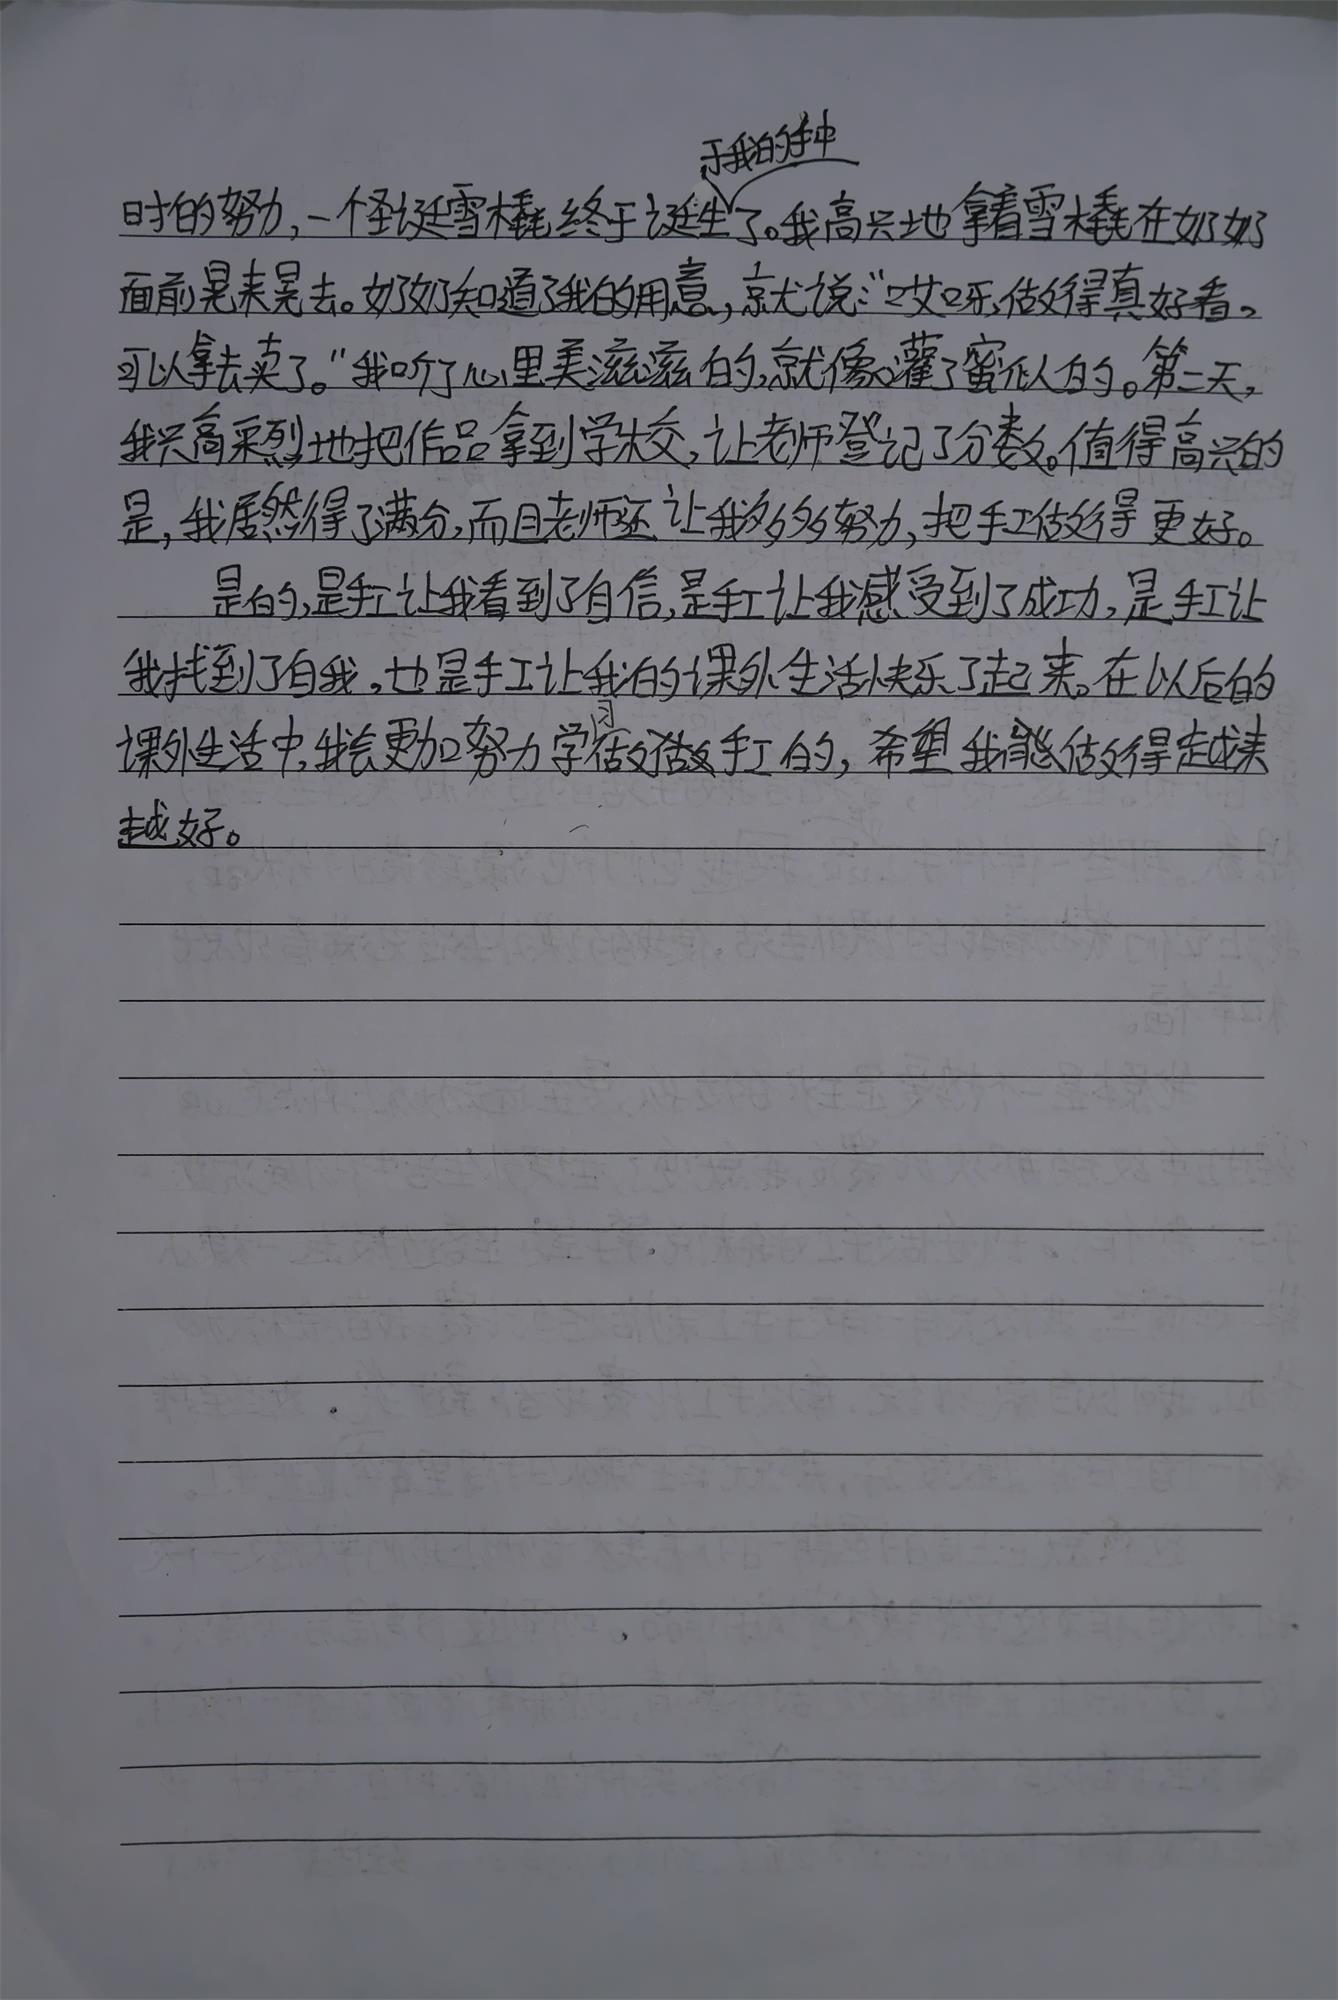 于我的手中
时的努力，一个怪诞雪橇终于诞生了。我高兴地拿着雪橇在奶奶
面前晃来晃去。奶奶知道了我的用意，就说：“哎呀，做得真好看。
可以拿去卖了。”我听了心里美滋滋的，就像灌了蜜似的。第二天，
我兴高采烈地把作品拿到学校，让老师登记了分数。值得高兴的
是，我居然得了满分，而且老师还让我多多努力，把手工做得更好。
是的，是手工让我看到了自信，是手工让我感受到了成功，是手工让
我找到了自我，也是手工让我的课外生活快乐了起来。在以后的
习
课外生活中，我会更加努力学做做手工的，希望我能做得越来
越好。